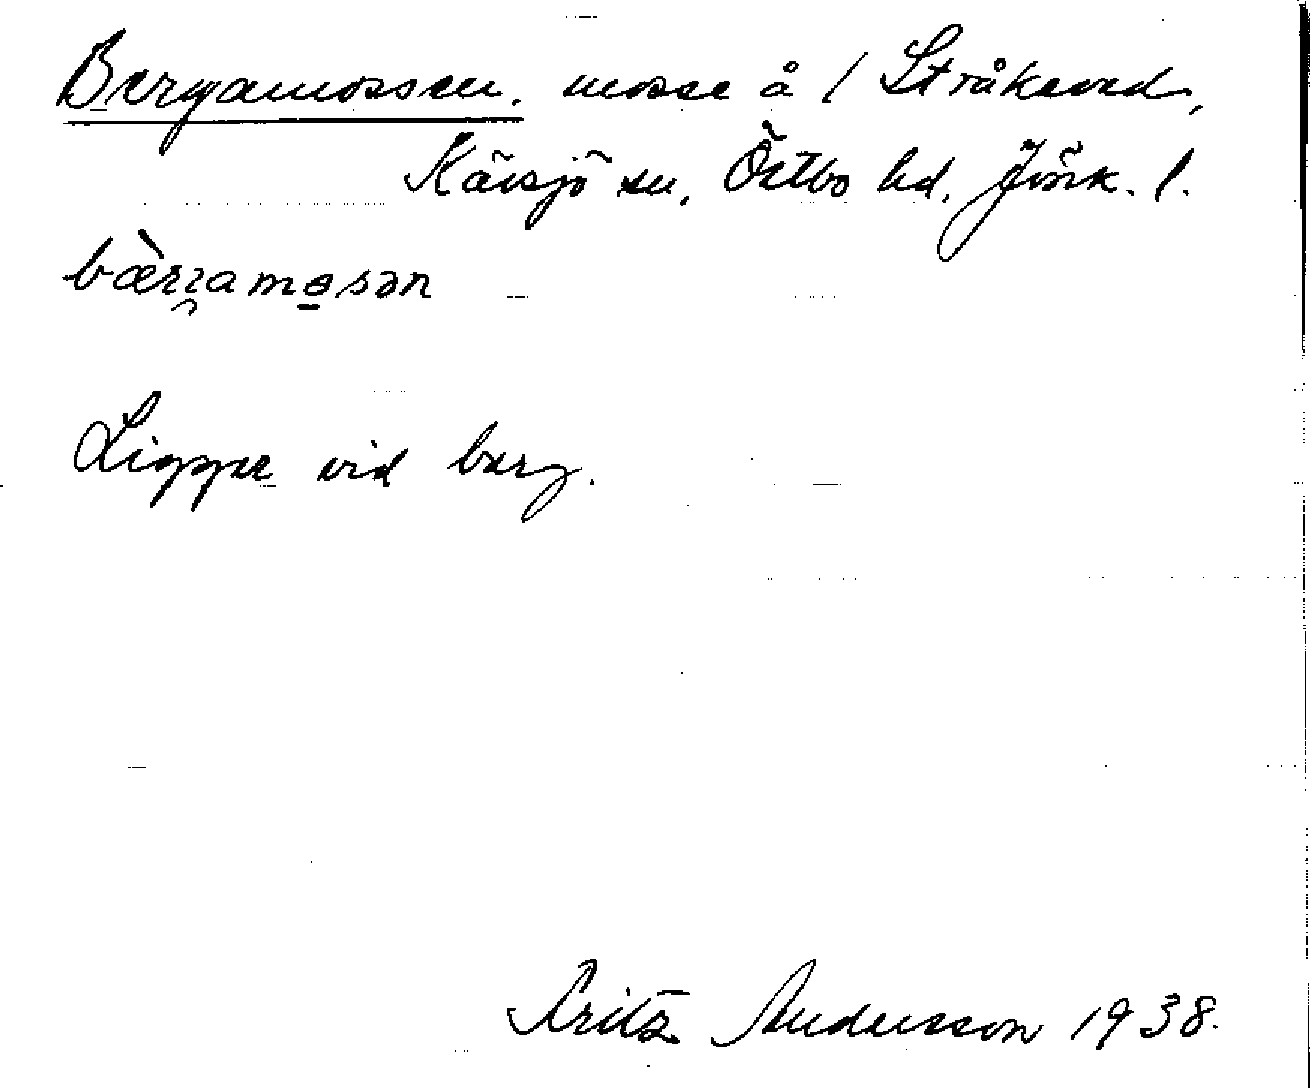 Bergamossen. mosse å / Stråkeved,
Kävsjö sn, Östbo hd, Jönk. l.
bær̯ɿamosən
Ligger vid berg.
Fritz Andersson 1938.